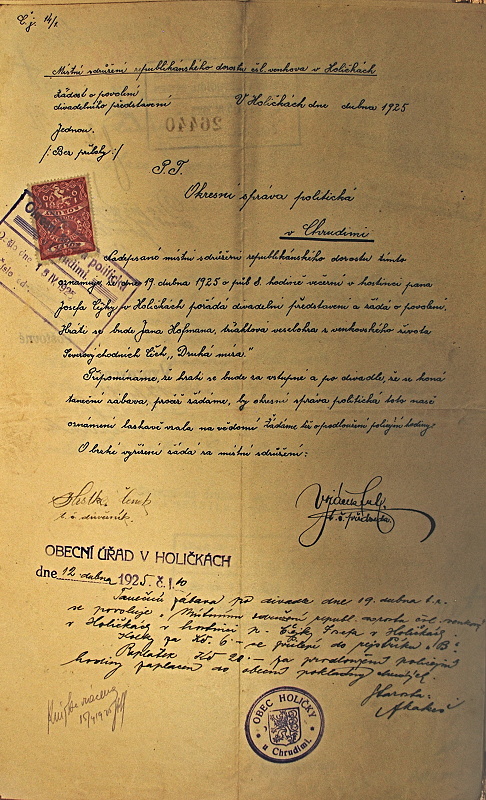 Č.j. 14/2
Místní sdružení republikánského dorostu čsl. venkova v Holičkách
Žádost o povolení
divadelního představení
V Holičkách dne dubna 1925
Jednou.
/: Bez přílohy :/
26440
P. T.
Okresní správa politická
v Chrudimi
Podepsané místní sdružení republikánského dorostu tímto
oznamuje, že dne 19. dubna 1925 o půl 8. hodině večerní v hostinci pana
Josefa Cejky v Holičkách pořádá divadelní představení a žádá o povolení.
Hráti se bude Jana Hofmana, tříaktova veselohra z venkovského života
Severovýchodních Čech „Druhá míza."
Připomínáme, že hráti se bude za vstupné a po divadle, že se koná
taneční zábava, pročež žádáme, by okresní správa politická toto naše
oznámení laskavě vzala na vědomí Žádáme též o prodloužení policejní hodiny.
O brzké vyřízení žádá za místní sdružení:
t. č. důvěrník.
t. č. předseda
OBECNÍ ÚŘAD V HOLIČKÁCH
dne 12. dubna 1925 č. j. 10
Taneční zábava po divadle dne 19. dubna t. r.
se povoluje Místnímu sdružení republ. dorostu čsl. venkova
v Holičkách v hostinci p. Josefa v Holičkách.
Kolky za Kč 6.– se
Poplatek Kč 20.– za prodloužení policejní
hodiny zaplacen do obecní pokladny
Starosta:
15/4 1925
OBEC HOLIČKY
u Chrudimi.